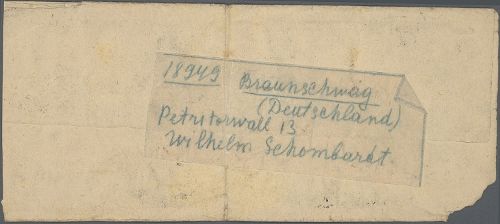 18949 Braunschwag
(Deutschland)
Petritorwall 13
Wilhelm Schombardt